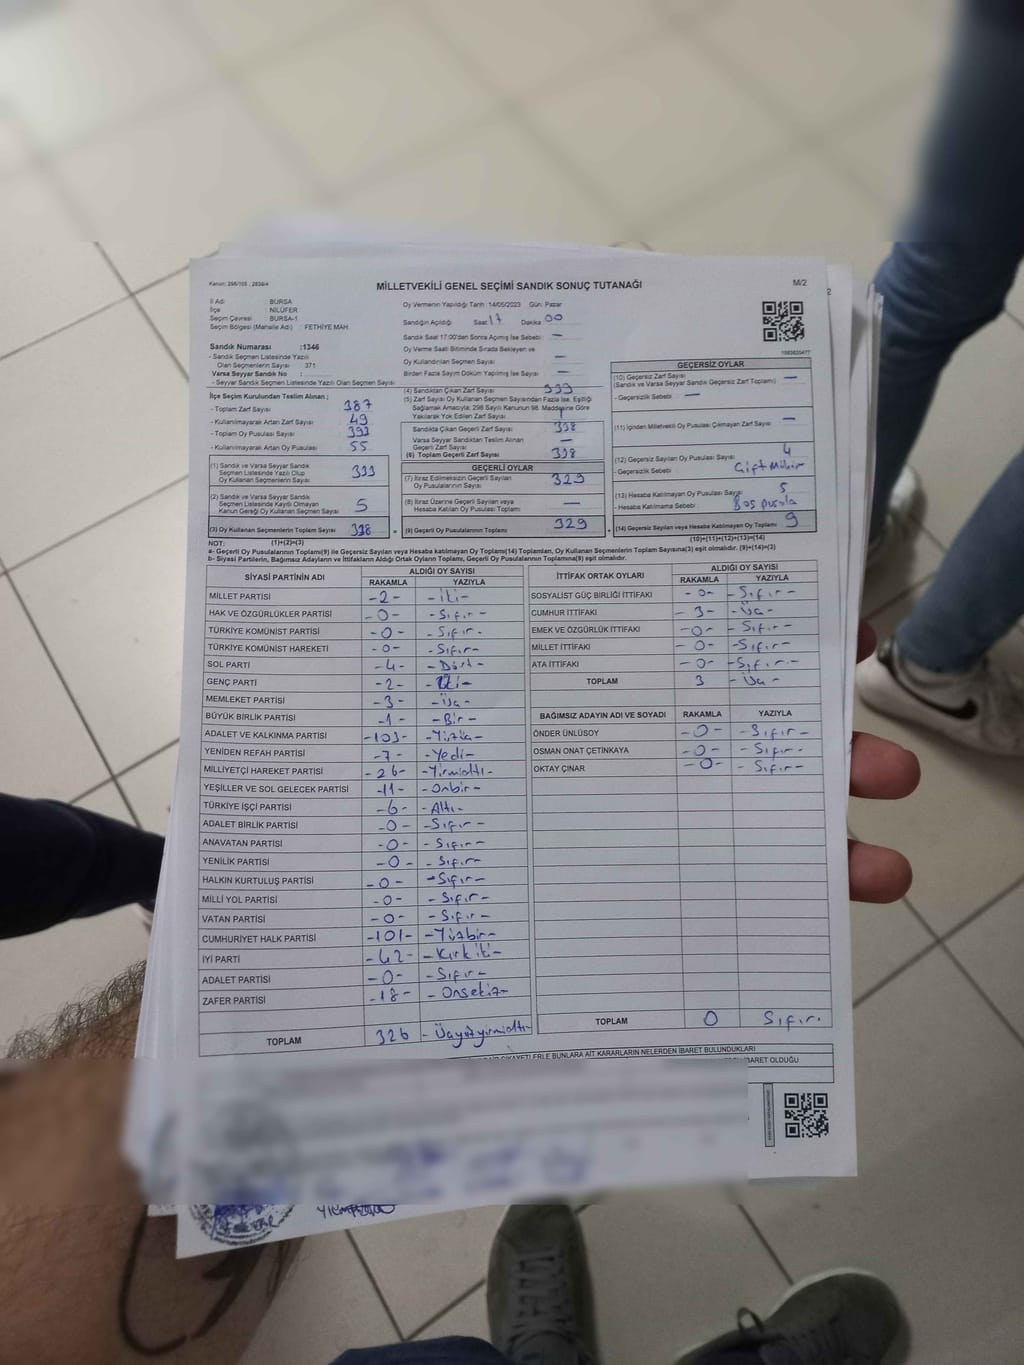 Kanun: 298/105 , 2839/4
MİLLETVEKİLİ GENEL SEÇİMİ SANDIK SONUÇ TUTANAĞI
M/2
2
İl Adı : BURSA
İlçe : NİLÜFER
Seçim Çevresi : BURSA-1
Seçim Bölgesi (Mahalle Adı) : FETHİYE MAH.
Sandık Numarası :1346
- Sandık Seçmen Listesinde Yazılı
Olan Seçmenlerin Sayısı 371
Varsa Seyyar Sandık No :
- Seyyar Sandık Seçmen Listesinde Yazılı Olan Seçmen Sayısı
Oy Vermenin Yapıldığı Tarih :14/05/2023 Gün: Pazar
Sandığın Açıldığı Saat 17 Dakika 00
Sandık Saat 17:00'den Sonra Açılmış İse Sebebi —
Oy Verme Saati Bitiminde Sırada Bekleyen ve
Oy Kullandırılan Seçmen Sayısı —
Birden Fazla Sayım Döküm Yapılmış İse Sayısı —
İlçe Seçim Kurulundan Teslim Alınan ;
- Toplam Zarf Sayısı 387
- Kullanılmayarak Artan Zarf Sayısı 49
- Toplam Oy Pusulası Sayısı 393
- Kullanılmayarak Artan Oy Pusulası 55
(1) Sandık ve Varsa Seyyar Sandık
Seçmen Listesinde Yazılı Olup
Oy Kullanan Seçmenlerin Sayısı 333
(2) Sandık ve Varsa Seyyar Sandık
Seçmen Listesinde Kayıtlı Olmayan
Kanun Gereği Oy Kullanan Seçmen Sayısı 5
(3) Oy Kullanan Seçmenlerin Toplam Sayısı 338
(4) Sandıktan Çıkan Zarf Sayısı 339
(5) Zarf Sayısı Oy Kullanan Seçmen Sayısından Fazla İse, Eşitliği
Sağlamak Amacıyla; 298 Sayılı Kanunun 98. Maddesine Göre
Yakılarak Yok Edilen Zarf Sayısı 1
Sandıkta Çıkan Geçerli Zarf Sayısı 338
Varsa Seyyar Sandıktan Teslim Alınan
Geçerli Zarf Sayısı —
(6) Toplam Geçerli Zarf Sayısı 338
GEÇERLİ OYLAR
(7) İtiraz Edilmeksizin Geçerli Sayılan
Oy Pusulalarının Sayısı 329
(8) İtiraz Üzerine Geçerli Sayılan veya
Hesaba Katılan Oy Pusulası Toplamı —
= (9) Geçerli Oy Pusulalarının Toplamı 329 +
1083820477
GEÇERSİZ OYLAR
(10) Geçersiz Zarf Sayısı
(Sandık ve Varsa Seyyar Sandık Geçersiz Zarf Toplamı) —
- Geçersizlik Sebebi —
(11) İçinden Milletvekili Oy Pusulası Çıkmayan Zarf Sayısı —
(12) Geçersiz Sayılan Oy Pusulası Sayısı 4
- Geçersizlik Sebebi Çift Mühür
(13) Hesaba Katılmayan Oy Pusulası Sayısı 5
- Hesaba Katılmama Sebebi Boş pusula
(14) Geçersiz Sayılan veya Hesaba Katılmayan Oy Toplamı 9
NOT: (1)+(2)=(3)
(10)+(11)+(12)+(13)=(14)
a- Geçerli Oy Pusulaları Toplamı(9) ile Geçersiz Sayılan veya Hesaba katılmayan Oy Toplamı(14) Toplamları, Oy Kullanan Seçmenlerin Toplam Sayısına(3) eşit olmalıdır. (9)+(14)=(3)
b- Siyasi Partilerin, Bağımsız Adayların ve İttifakların Aldığı Ortak Oyların Toplamı, Geçerli Oy Pusulalarının Toplamına(9) eşit olmalıdır.
SİYASİ PARTİNİN ADI ALDIĞI OY SAYISI
RAKAMLA YAZIYLA
MİLLET PARTİSİ -2- -İki-
HAK VE ÖZGÜRLÜKLER PARTİSİ -0- -Sıfır-
TÜRKİYE KOMÜNİST PARTİSİ -0- -Sıfır-
TÜRKİYE KOMÜNİST HAREKETİ -0- -Sıfır-
SOL PARTİ -4- -Dört-
GENÇ PARTİ -2- -İki-
MEMLEKET PARTİSİ -3- -Üç-
BÜYÜK BİRLİK PARTİSİ -1- -Bir-
ADALET VE KALKINMA PARTİSİ -103- -Yüzüç-
YENİDEN REFAH PARTİSİ -7- -Yedi-
MİLLİYETÇİ HAREKET PARTİSİ -26- -Yirmialtı-
YEŞİLLER VE SOL GELECEK PARTİSİ -11- -Onbir-
TÜRKİYE İŞÇİ PARTİSİ -6- -Altı-
ADALET BİRLİK PARTİSİ -0- -Sıfır-
ANAVATAN PARTİSİ -0- -Sıfır-
YENİLİK PARTİSİ -0- -Sıfır-
HALKIN KURTULUŞ PARTİSİ -0- -Sıfır-
MİLLİ YOL PARTİSİ -0- -Sıfır-
VATAN PARTİSİ -0- -Sıfır-
CUMHURİYET HALK PARTİSİ -101- -Yüzbir-
İYİ PARTİ -42- -Kırkiki-
ADALET PARTİSİ -0- -Sıfır-
ZAFER PARTİSİ -18- -Onsekiz-
TOPLAM 326 -Üçyüzyirmialtı-
İTTİFAK ORTAK OYLARI ALDIĞI OY SAYISI
RAKAMLA YAZIYLA
SOSYALİST GÜÇ BİRLİĞİ İTTİFAKI -0- -Sıfır-
CUMHUR İTTİFAKI -3- -Üç-
EMEK VE ÖZGÜRLÜK İTTİFAKI -0- -Sıfır-
MİLLET İTTİFAKI -0- -Sıfır-
ATA İTTİFAKI -0- -Sıfır-
TOPLAM 3 -Üç-
BAĞIMSIZ ADAYIN ADI VE SOYADI RAKAMLA YAZIYLA
ÖNDER ÜNLÜSOY -0- -Sıfır-
OSMAN ONAT ÇETİNKAYA -0- -Sıfır-
OKTAY ÇINAR -0- -Sıfır-
TOPLAM 0 Sıfır.
ŞİKAYETLERLE BUNLARA AİT KARARLARIN NELERDEN İBARET BULUNDUKLARI
İBARET OLDUĞU